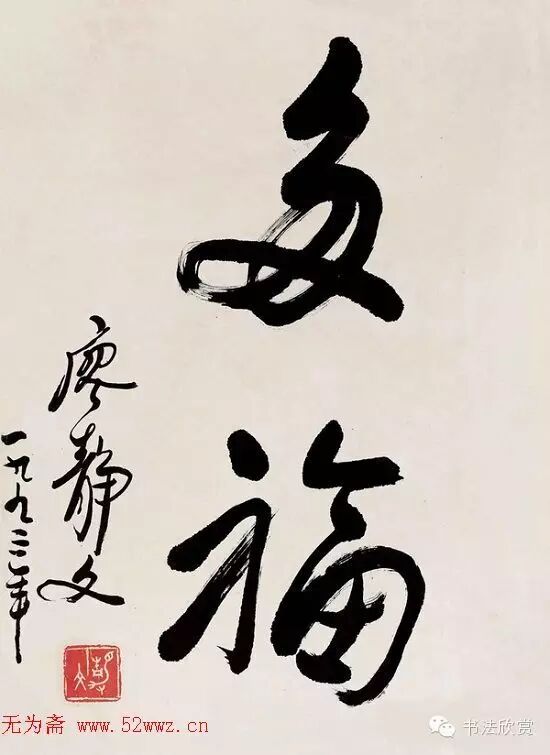 多福
廖静文
一九九三年
无为斋 www.52wwz.cn
书法欣赏